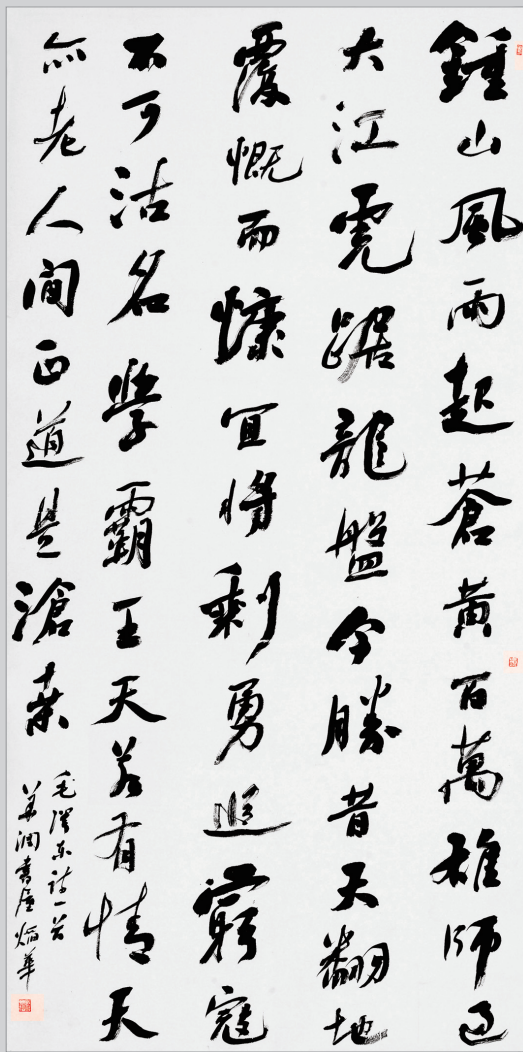 鍾山風雨起蒼黄百萬雄師過
大江虎踞龍盤今勝昔天翻地
覆慨而慷宜將剩勇追窮寇
不可沽名學霸王天若有情天
亦老人間正道是滄桑
毛澤東詩一首
潤書屋華